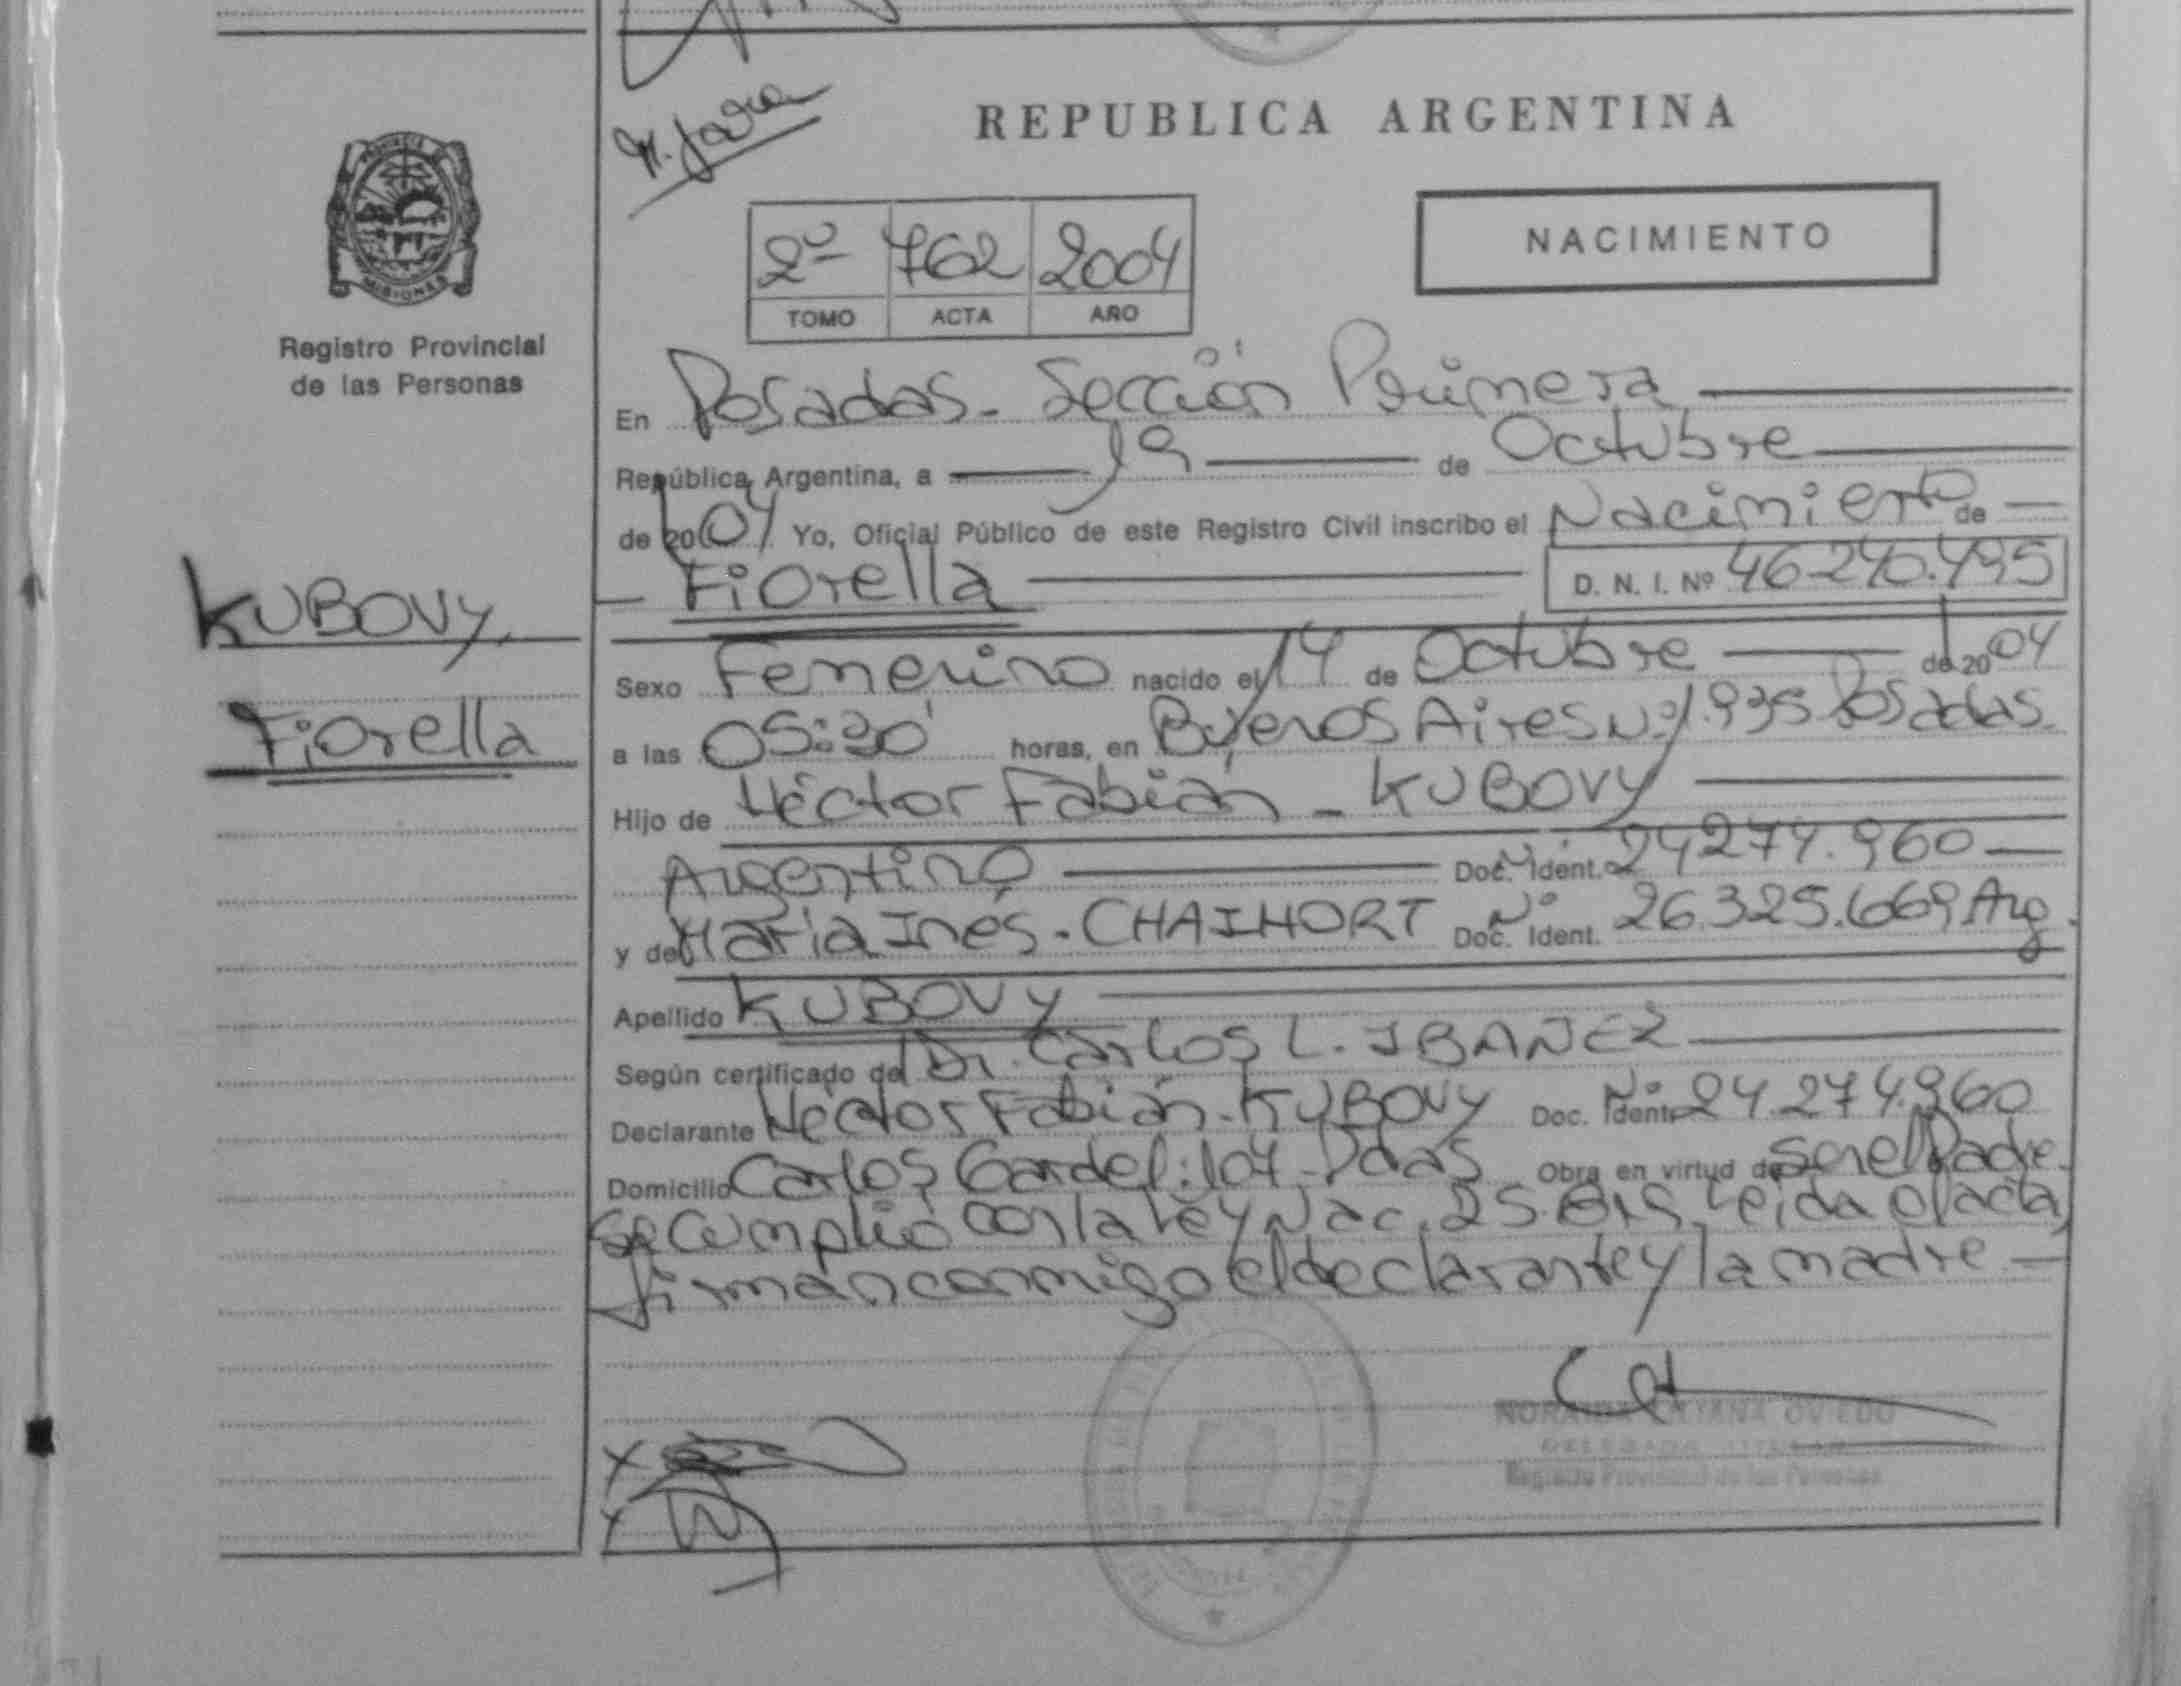 M. Java
REPUBLICA ARGENTINA
PROVINCIA DE
MISIONES
Registro Provincial
de las Personas
2º 762 2004
TOMO ACTA AÑO
NACIMIENTO
En Posadas - Sección Primera
República Argentina, a 19 de Octubre
de 2004 Yo, Oficial Público de este Registro Civil inscribo el Nacimiento de
Fiorella D. N. I. Nº 46.240.495
KUBOVY,
Fiorella
Sexo Femenino nacido el 14 de Octubre de 2004
a las 05:30' horas, en Buenos Aires Nº 1.935 Posadas.
Hijo de Héctor Fabián - KUBOVY
Argentino Doc. Ident. Nº 24.274.960
y de María Inés - CHAIHORT Doc. Ident. Nº 26.325.669 Arg.
Apellido KUBOVY
Según certificado de Dr. Carlos L. IBAÑEZ
Declarante Héctor Fabián - KUBOVY Doc. Ident. Nº 24.274.960
Domicilio Carlos Gardel: 104 - Pdas Obra en virtud de ser el Padre.
Se cumplió con la Ley Nac. Leída el acta,
firman conmigo el declarante y la madre
NORAIDA LILIANA OVIEDO
DELEGADA TITULAR
Registro Provincial de las Personas